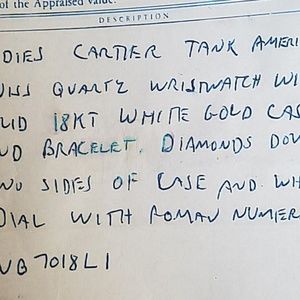 of the Appraised Value.
DESCRIPTION
DIES CARTIER TANK AMERI
QUARTZ WRISTWATCH WI
LID 18KT WHITE GOLD CAS
ND BRACELET. DIAMONDS DOW
SIDES OF CASE AND WH
DIAL WITH ROMAN NUMER
WB7018L1